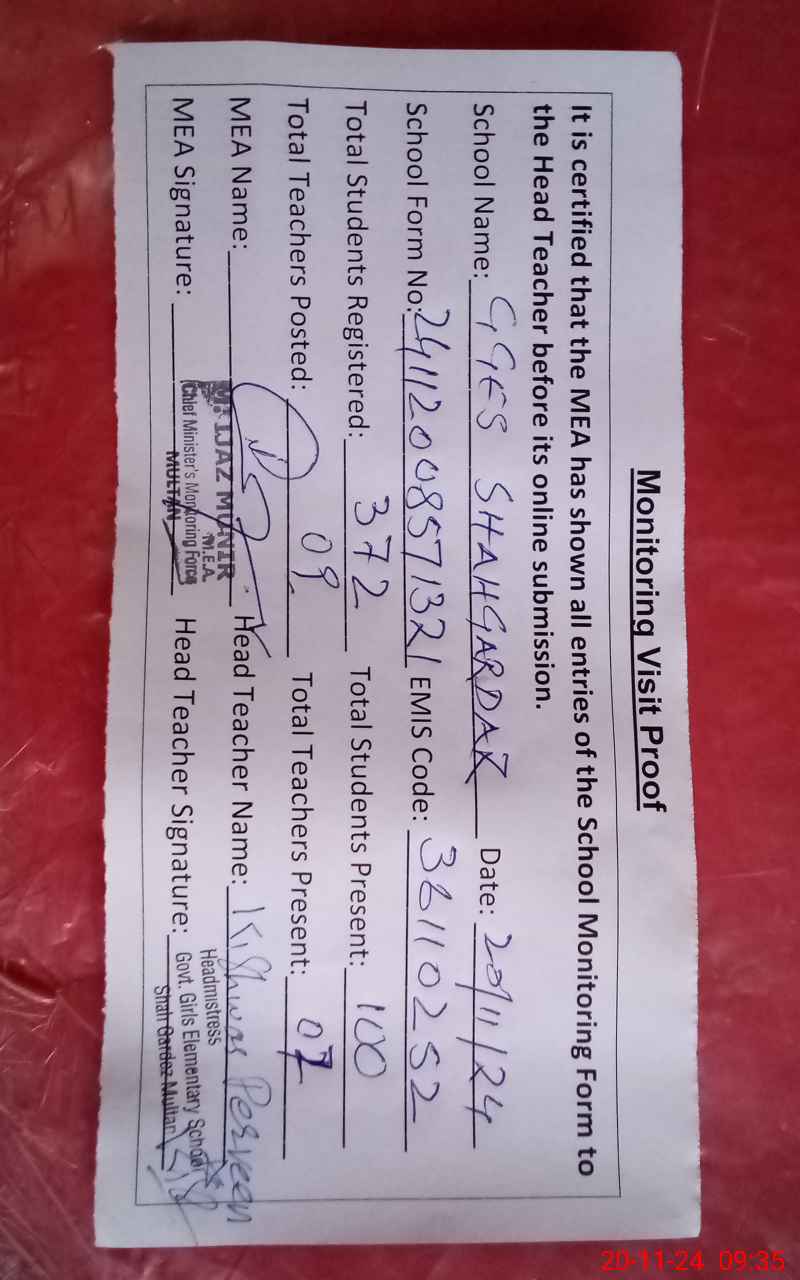 Monitoring Visit Proof
It is certified that the MEA has shown all entries of the School Monitoring Form to
the Head Teacher before its online submission.
School Name: GGES SHAHGARDAZ Date: 20/11/24
School Form No: 24112008571321 EMIS Code: 36110252
Total Students Registered: 372 Total Students Present: 100
Total Teachers Posted: 09 Total Teachers Present: 07
MEA Name: IJAZ MUNIR Head Teacher Name: Kishwar Perveen
M.E.A.
Chief Minister's Monitoring Force
MULTAN
Headmistress
Govt. Girls Elementary School
Shah Gardez Multan
MEA Signature: Head Teacher Signature:
20-11-24 09:35